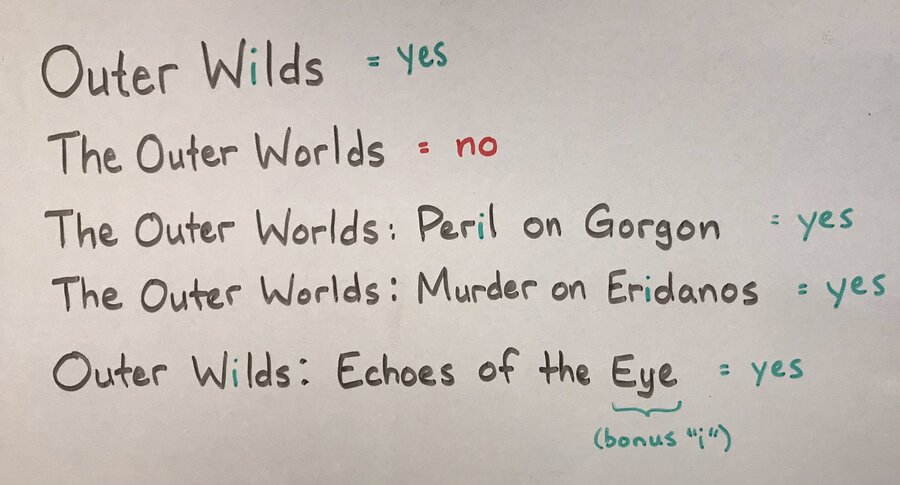 Outer Wilds = yes
The Outer Worlds = no
The Outer Worlds: Peril on Gorgon = yes
The Outer Worlds: Murder on Eridanos = yes
Outer Wilds: Echoes of the Eye = yes
(bonus "i")